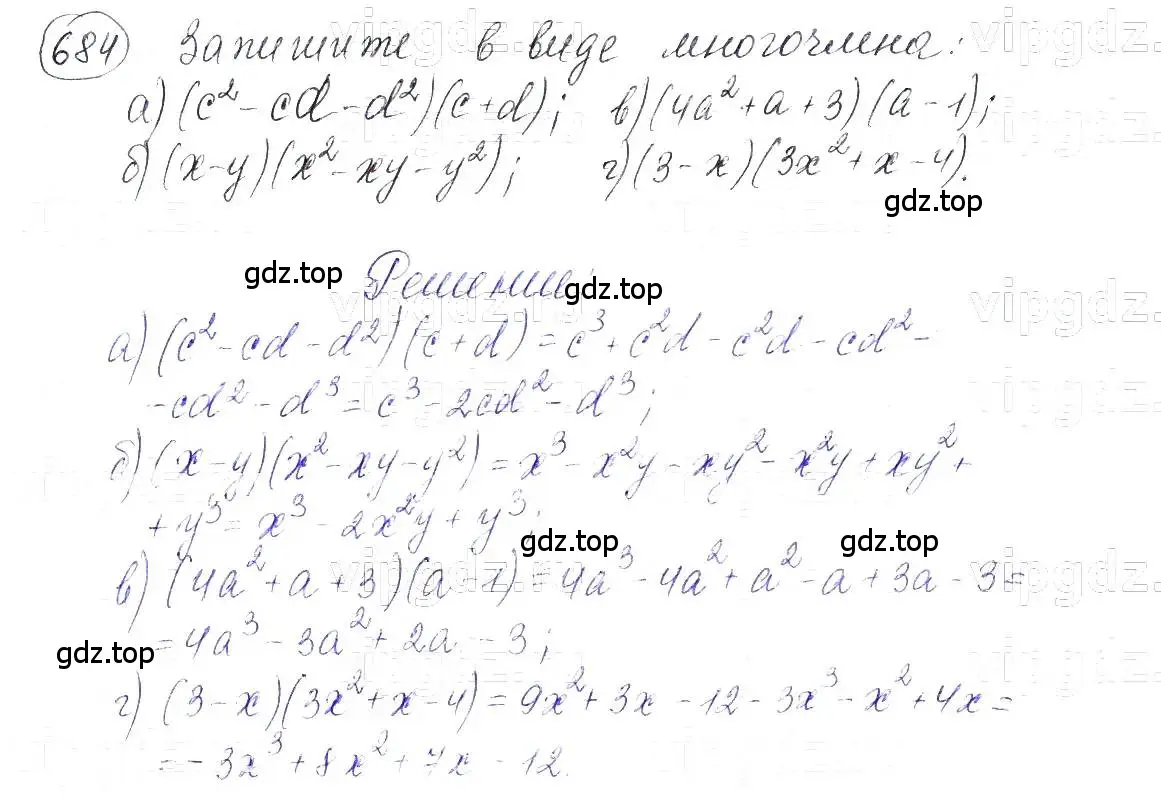 684 Запишите в виде многочлена:
а) (c² - cd - d²)(c + d); в) (4a² + a + 3)(a - 1);
б) (x - y)(x² - xy - y²); г) (3 - x)(3x² + x - 4).
gdz.top
gdz.top Решение: gdz.top
vipgdz.ru vipgdz.
а) (c² - cd - d²)(c + d) = c³ + c²d - c²d - cd² -
- cd² - d³ = c³ - 2cd² - d³;
б) (x - y)(x² - xy - y²) = x³ - x²y - xy² - x²y + xy² +
+ y³ = x³ - 2x²y + y³;
gdz.top gdz.top
в) (4a² + a + 3)(a - 1) = 4a³ - 4a² + a² - a + 3a - 3 =
= 4a³ - 3a² + 2a - 3;
gdz.top
г) (3 - x)(3x² + x - 4) = 9x² + 3x - 12 - 3x³ - x² + 4x =
= - 3x³ + 8x² + 7x - 12.